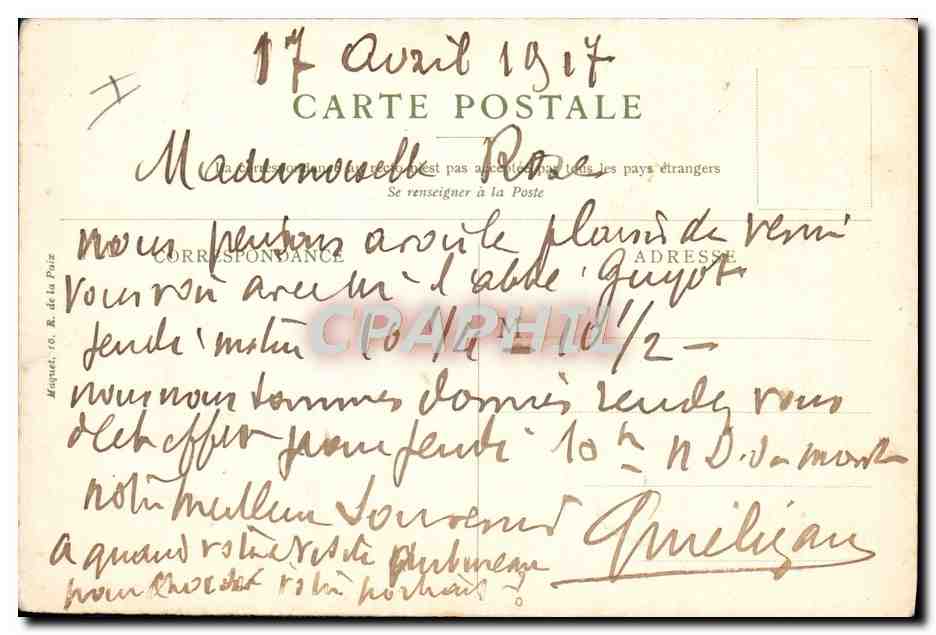 17 Avril 1917
CARTE POSTALE
Mademoiselle Rose
La correspondance au recto n'est pas acceptée par tous les pays étrangers
Se renseigner à la Poste
nous pensons avoir le plaisir de venir
CORRESPONDANCE
ADRESSE
vous voir avec l'abbé Guyot
CPAPHIL
M
jeudi matin 10 1/4 = 10 1/2 —
nous nous sommes donnés rendez vous
à cet effet pour jeudi 10h ND. du
notre meilleur souvenir
a quand votre visite
pour votre portrait - ?
Maquet, 10, R. de la Paix